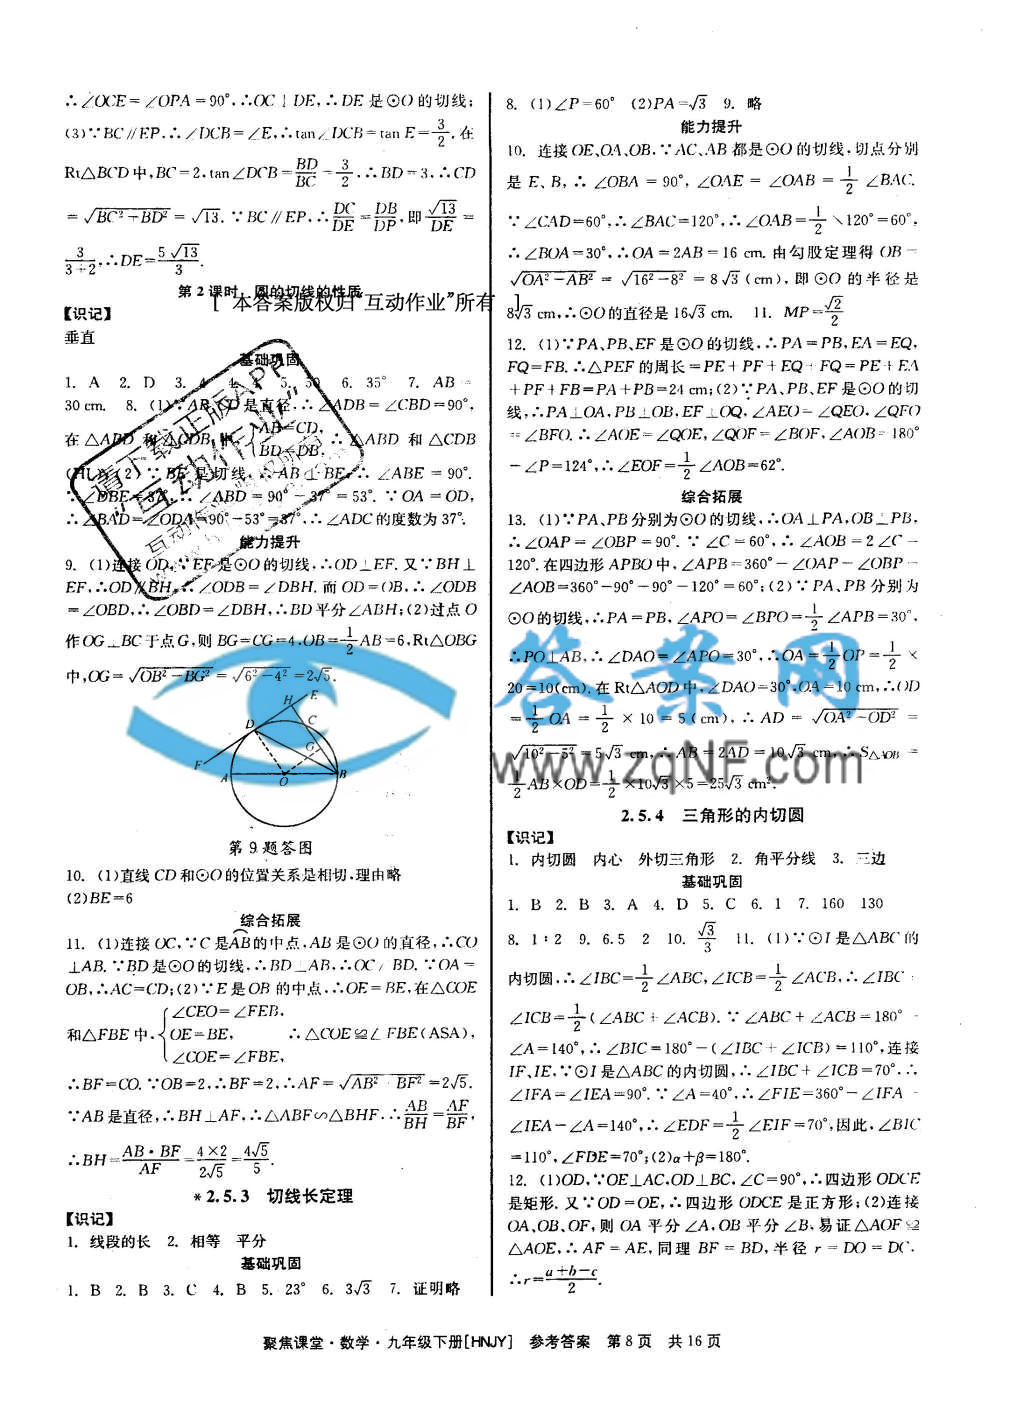 ∴∠OCE=∠OPA=90°,∴OC⊥DE,∴DE是⊙O的切线;
(3)∵BC∥EP,∴∠DCB=∠E,∴tan∠DCB=tan E=3/2.在
Rt△BCD中,BC=2,tan∠DCB=BD/BC=3/2,∴BD=3,∴CD
=√(BC²+BD²)=√13.∵BC∥EP,∴DC/DE=DB/DP,即√13/DE=
3/(3+2),∴DE=5√13/3.
第2课时 圆的切线的性质
[ 本答案版权归"互动作业"所有 ]
【识记】
垂直
基础巩固
1. A 2. D 3. 4 4. 4 5. 50 6. 35° 7. AB=
30 cm. 8. (1)∵AB,CD是直径,∴∠ADB=∠CBD=90°,
在△ABD和△CDB中,{AB=CD, BD=DB, ∴△ABD和△CDB
(HL);(2)∵BE是切线,∴AB⊥BE,∴∠ABE=90°.
∵∠DBE=37°,∴∠ABD=90°-37°=53°.∵OA=OD,
∴∠BAD=∠ODA=90°-53°=37°,∴∠ADC的度数为37°.
能力提升
9. (1)连接OD,∵EF是⊙O的切线,∴OD⊥EF.又∵BH⊥
EF,∴OD∥BH,∴∠ODB=∠DBH.而OD=OB,∴∠ODB
=∠OBD,∴∠OBD=∠DBH,∴BD平分∠ABH;(2)过点O
作OG⊥BC于点G,则BG=CG=4,OB=1/2AB=6,Rt△OBG
中,OG=√(OB²-BG²)=√(6²-4²)=2√5.
H E
D C
G
F
A O B
第9题答图
10. (1)直线CD和⊙O的位置关系是相切,理由略
(2)BE=6
综合拓展
11. (1)连接OC,∵C是AB的中点,AB是⊙O的直径,∴CO
⊥AB.∵BD是⊙O的切线,∴BD⊥AB,∴OC∥BD.∵OA=
OB,∴AC=CD;(2)∵E是OB的中点,∴OE=BE,在△COE
和△FBE中,{∠CEO=∠FEB, OE=BE, ∠COE=∠FBE, ∴△COE≌△FBE(ASA),
∴BF=CO.∵OB=2,∴BF=2,∴AF=√(AB²+BF²)=2√5.
∵AB是直径,∴BH⊥AF,∴△ABF∽△BHF.∴AB/BH=AF/BF,
∴BH=AB·BF/AF=4×2/2√5=4√5/5.
*2.5.3 切线长定理
【识记】
1. 线段的长 2. 相等 平分
基础巩固
1. B 2. B 3. C 4. B 5. 23° 6. 3√3 7. 证明略
8. (1)∠P=60° (2)PA=√3 9. 略
能力提升
10. 连接OE、OA、OB,∵AC、AB都是⊙O的切线,切点分别
是E、B,∴∠OBA=90°,∠OAE=∠OAB=1/2∠BAC.
∵∠CAD=60°,∴∠BAC=120°,∴∠OAB=1/2×120°=60°,
∴∠BOA=30°,∴OA=2AB=16 cm.由勾股定理得OB=
√(OA²-AB²)=√(16²-8²)=8√3(cm),即⊙O的半径是
8√3 cm,∴⊙O的直径是16√3 cm. 11. MP=√2/2
12. (1)∵PA、PB、EF是⊙O的切线,∴PA=PB,EA=EQ,
FQ=FB.∴△PEF的周长=PE+PF+EQ+FQ=PE+EA
+PF+FB=PA+PB=24 cm;(2)∵PA、PB、EF是⊙O的切
线,∴PA⊥OA,PB⊥OB,EF⊥OQ,∠AEO=∠QEO,∠QFO
=∠BFO.∴∠AOE=∠QOE,∠QOF=∠BOF,∠AOB=180°
-∠P=124°,∴∠EOF=1/2∠AOB=62°.
综合拓展
13. (1)∵PA、PB分别为⊙O的切线,∴OA⊥PA,OB⊥PB,
∴∠OAP=∠OBP=90°.∵∠C=60°,∴∠AOB=2∠C=
120°.在四边形APBO中,∠APB=360°-∠OAP-∠OBP-
∠AOB=360°-90°-90°-120°=60°;(2)∵PA、PB分别为
⊙O的切线,∴PA=PB,∠APO=∠BPO=1/2∠APB=30°,
∴PO⊥AB,∴∠DAO=∠APO=30°,∴OA=1/2OP=1/2×
20=10(cm).在Rt△AOD中,∠DAO=30°,OA=10 cm,∴OD
=1/2OA=1/2×10=5(cm),∴AD=√(OA²-OD²)=
√(10²-5²)=5√3 cm,∴AB=2AD=10√3 cm,∴S△AOB=
1/2AB×OD=1/2×10√3×5=25√3 cm².
2.5.4 三角形的内切圆
【识记】
1. 内切圆 内心 外切三角形 2. 角平分线 3. 三边
基础巩固
1. B 2. B 3. A 4. D 5. C 6. 1 7. 160 130
8. 1∶2 9. 6.5 2 10. √3/3 11. (1)∵⊙I是△ABC的
内切圆,∴∠IBC=1/2∠ABC,∠ICB=1/2∠ACB,∴∠IBC+
∠ICB=1/2(∠ABC+∠ACB).∵∠ABC+∠ACB=180°-
∠A=140°,∴∠BIC=180°-(∠IBC+∠ICB)=110°,连接
IF、IE,∵⊙I是△ABC的内切圆,∴∠IBC+∠ICB=70°.∴
∠IFA=∠IEA=90°.∵∠A=40°,∴∠FIE=360°-∠IFA-
∠IEA-∠A=140°,∴∠EDF=1/2∠EIF=70°,因此,∠BIC
=110°,∠FDE=70°;(2)α+β=180°.
12. (1)OD,∵OE⊥AC,OD⊥BC,∠C=90°,∴四边形ODCE
是矩形.又∵OD=OE,∴四边形ODCE是正方形;(2)连接
OA、OB、OF,则OA平分∠A,OB平分∠B,易证△AOF≌
△AOE,∴AF=AE,同理BF=BD,半径r=DO=DC.
∴r=(a+b-c)/2.
请下载正版APP
"互动作业"
答案网
www.zqNF.com
聚焦课堂·数学·九年级下册[HNJY] 参考答案 第8页 共16页